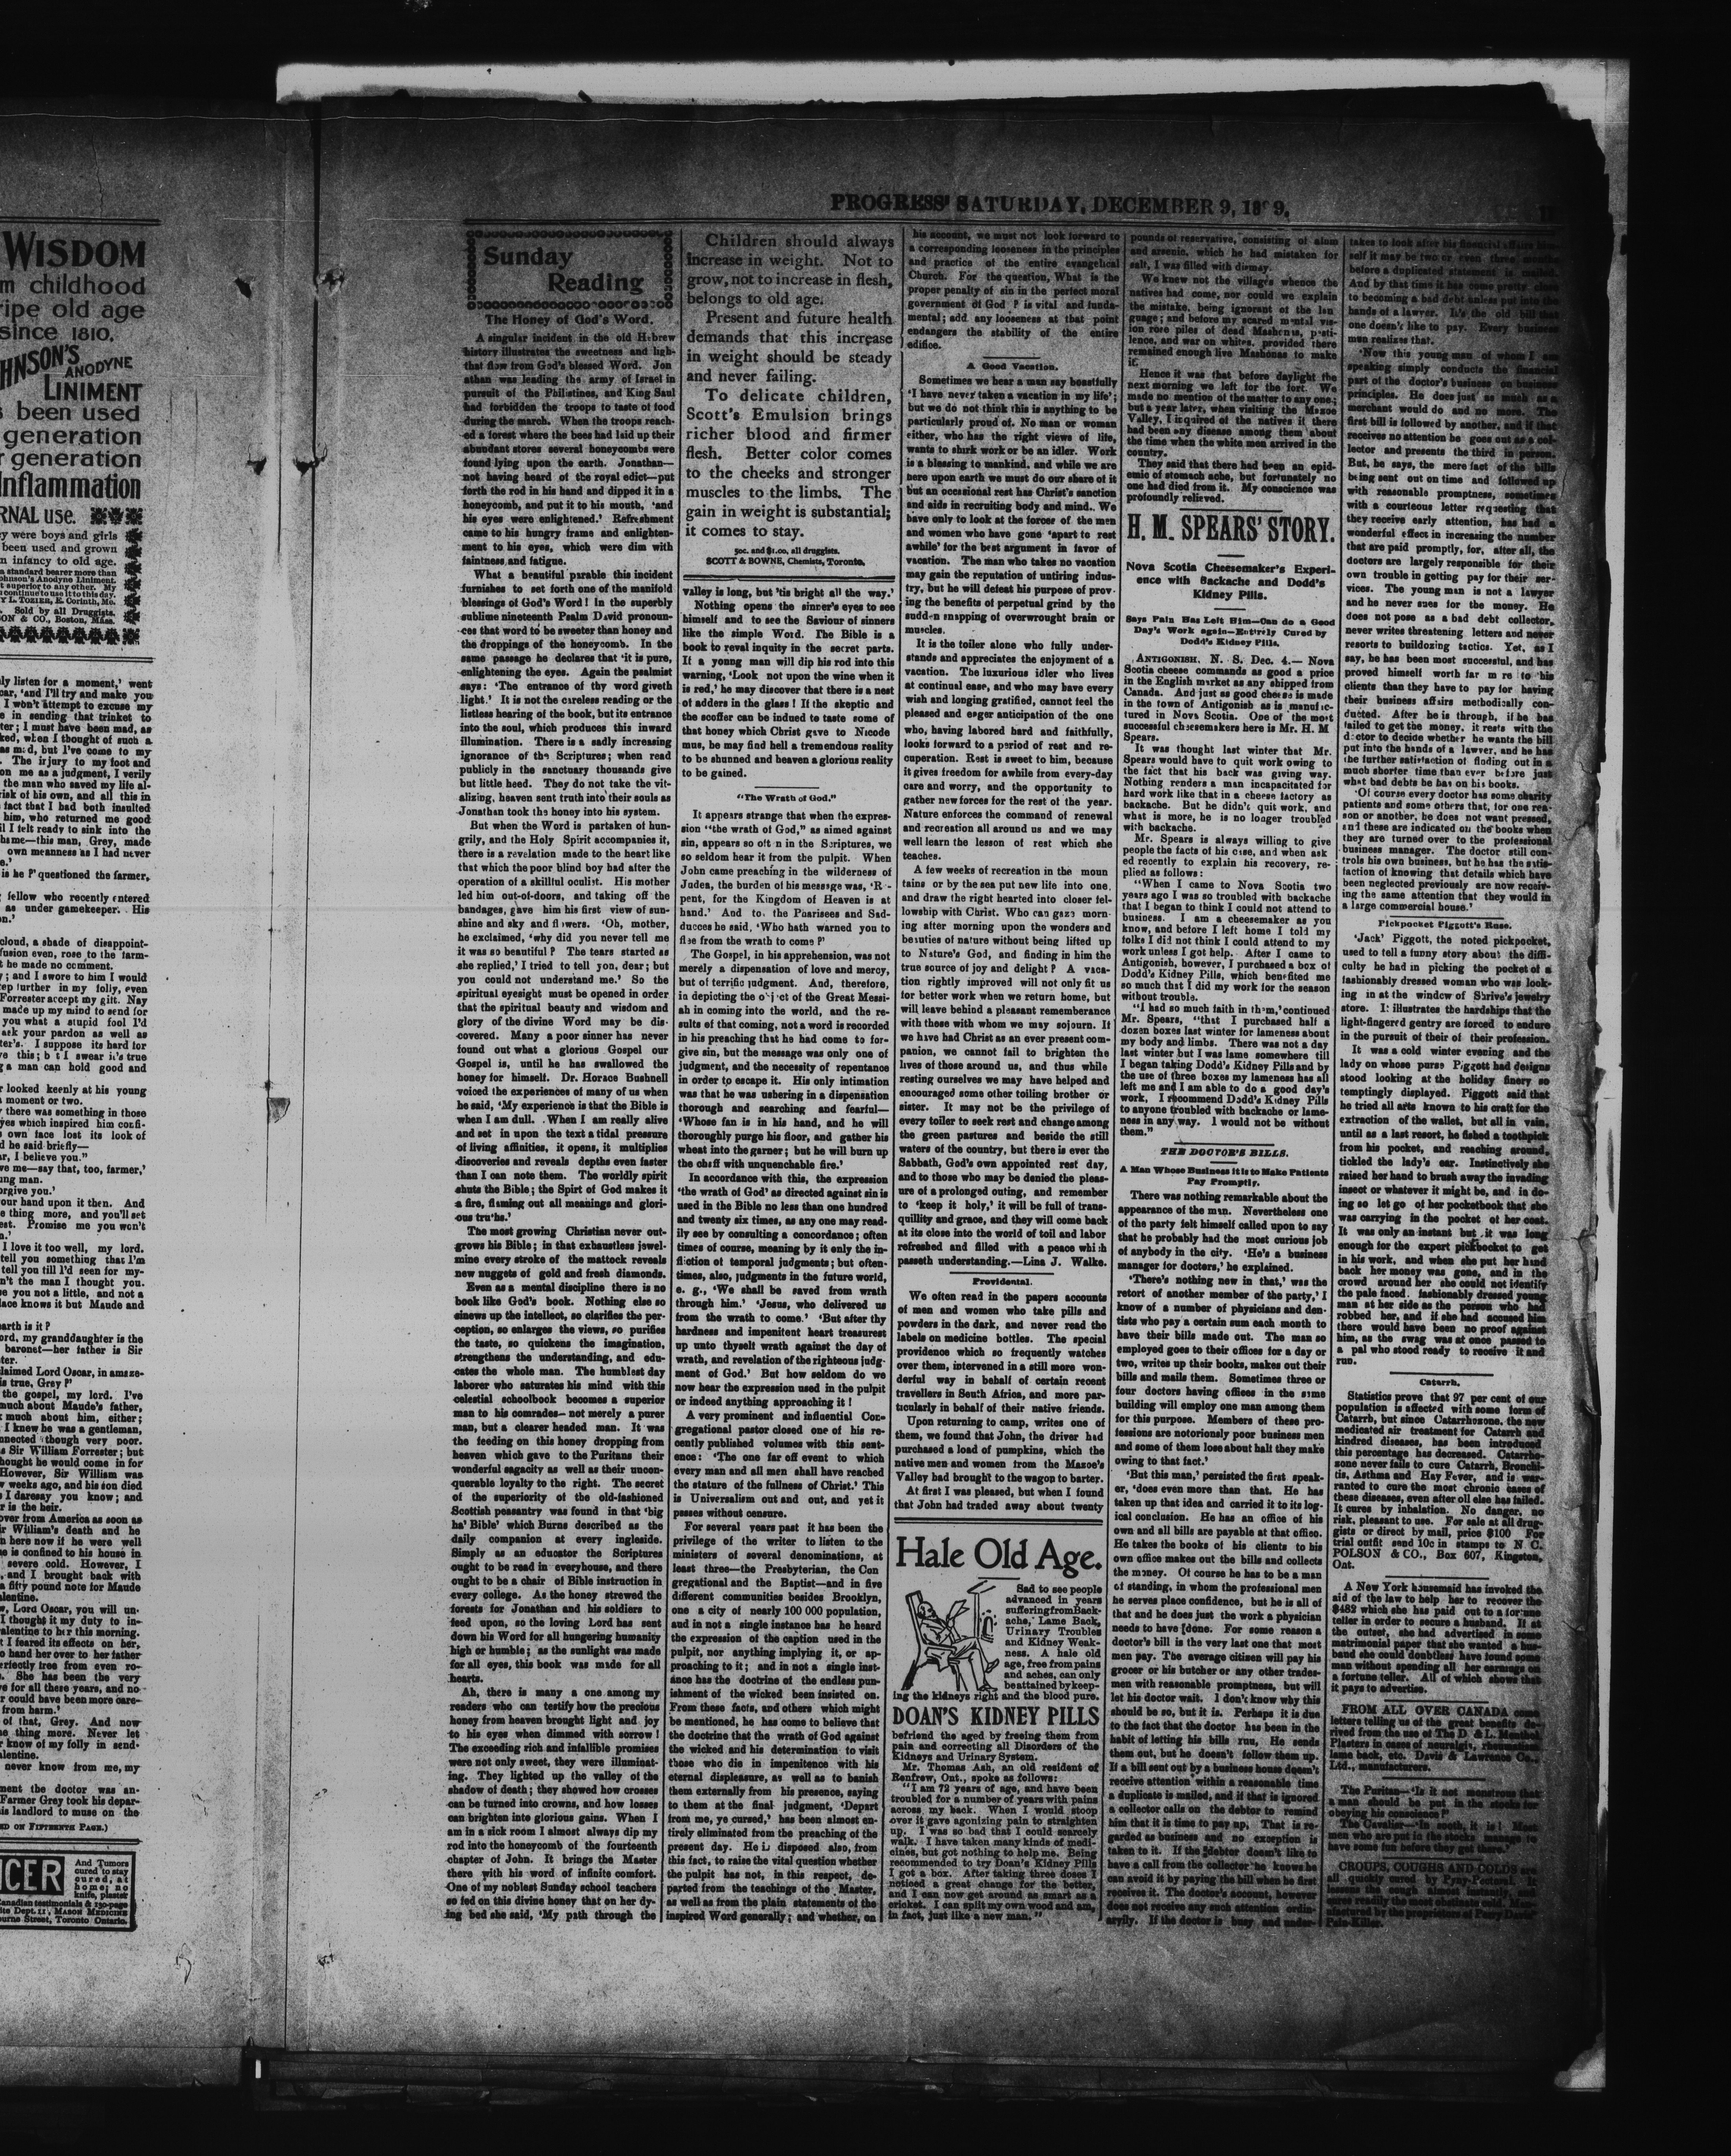 WISDOM
m childhood
ripe old age
since 1810.
HNSON'S
ANODYNE
LINIMENT
s been used
generation
r generation
Inflammation
RNAL use.
ey were boys and girls
been used and grown
n infancy to old age.
a standard bearer more than
ohnson's Anodyne Liniment.
t superior to any other. My
I continue to use it to this day.
Y L. TOZIER, E. Corinth, Me.
Sold by all Druggists.
ON & CO., Boston, Mass.
ly listen for a moment,' went
car, 'and I'll try and make you
I won't attempt to excuse my
e in sending that trinket to
ter; I must have been mad, as
ked, when I thought of such a
as mad, but I've come to my
. The injury to my foot and
on me as a judgment, I verily
the man who saved my life al-
risk of his own, and all this in
fact that I had both insulted
him, who returned me good
il I felt ready to sink into the
hame—this man, Grey, made
own meanness as I had never
e.'
is he ?' questioned the farmer,
fellow who recently entered
as under gamekeeper. His
on.'
cloud, a shade of disappoint-
fusion even, rose to the farm-
t he made no comment.
; and I swore to him I would
ep further in my folly, even
Forrester accept my gift. Nay
made up my mind to send for
you what a stupid fool I'd
ask your pardon as well as
ter's. I suppose its hard for
ve this; b t I swear it's true
g a man can hold good and
r looked keenly at his young
moment or two.
there was something in those
yes which inspired him confi-
own face lost its look of
d he said briefly—
ar, I believe you."
ve me—say that, too, farmer,'
ung man.
orgive you.'
our hand upon it then. And
e thing more, and you'll set
est. Promise me you won't
n.'
I love it too well, my lord.
tell you something that I'm
tell you till I'd seen for my-
n't the man I thought you.
e you not a little, and not a
lace knows it but Maude and
earth is it ?
ord, my granddaughter is the
baronet—her father is Sir
ter.
laimed Lord Oscar, in amaze-
is true, Grey ?'
the gospel, my lord. I've
much about Maude's father,
much about him, either;
I knew he was a gentleman,
nnected though very poor.
s Sir William Forrester; but
hought he would come in for
However, Sir William was
w weeks ago, and his son died
I daresay you know; and
r is the heir.
over from America as soon as
r William's death and he
n here now if he were well
e is confined to his house in
severe cold. However, I
, and I brought back with
a fifty pound note for Maude
alentine.
w, Lord Oscar, you will un-
I thought it my duty to in-
alentine to her this morning.
t I feared its effects on her,
o hand her over to her father
erfectly free from even ro-
. She has been the very
e for all these years, and no
r could have been more care-
from harm.'
of that, Grey. And now
e thing more. Never let
r know of my folly in send-
alentine.
never know from me, my
ment the doctor was an-
Farmer Grey took his depar-
is landlord to muse on the
ED ON FIFTEENTH PAGE.)
CER
And Tumors
cured to stay
cured, at
home; no
knife, plaster
Canadian testimonials & 130-page
ite Dept. 11, MASON MEDICINE
ourne Street, Toronto Ontario.
PROGRESS' SATURDAY, DECEMBER 9, 18 9,
Sunday
Reading
The Honey of God's Word.
A singular incident in the old Hebrew
history illustrates the sweetness and ligh-
that flow from God's blessed Word. Jon
athan was leading the army of Israel in
pursuit of the Philistines, and King Saul
had forbidden the troops to taste of food
during the march. When the troops reach-
ed a forest where the bees had laid up their
abundant stores several honeycombs were
found lying upon the earth. Jonathan—
not having heard of the royal edict—put
forth the rod in his hand and dipped it in a
honeycomb, and put it to his mouth, 'and
his eyes were enlightened.' Refreshment
came to his hungry frame and enlighten-
ment to his eyes, which were dim with
faintness and fatigue.
What a beautiful parable this incident
furnishes to set forth one of the manifold
blessings of God's Word! In the superbly
sublime nineteenth Psalm David pronoun-
ces that word to be sweeter than honey and
the droppings of the honeycomb. In the
same passage he declares that 'it is pure,
enlightening the eyes. Again the psalmist
says: 'The entrance of thy word giveth
light.' It is not the careless reading or the
listless hearing of the book, but its entrance
into the soul, which produces this inward
illumination. There is a sadly increasing
ignorance of the Scriptures; when read
publicly in the sanctuary thousands give
but little heed. They do not take the vit-
alizing, heaven sent truth into their souls as
Jonathan took the honey into his system.
But when the Word is partaken of hun-
grily, and the Holy Spirit accompanies it,
there is a revelation made to the heart like
that which the poor blind boy had after the
operation of a skillful oculist. His mother
led him out-of-doors, and taking off the
bandages, gave him his first view of sun-
shine and sky and flowers. 'Oh, mother,
he exclaimed, 'why did you never tell me
it was so beautiful ? The tears started as
she replied,' I tried to tell you, dear; but
you could not understand me.' So the
spiritual eyesight must be opened in order
that the spiritual beauty and wisdom and
glory of the divine Word may be dis-
covered. Many a poor sinner has never
found out what a glorious Gospel our
Gospel is, until he has swallowed the
honey for himself. Dr. Horace Bushnell
voiced the experiences of many of us when
he said, 'My experience is that the Bible is
when I am dull. . When I am really alive
and set in upon the text a tidal pressure
of living affinities, it opens, it multiplies
discoveries and reveals depths even faster
than I can note them. The worldly spirit
shuts the Bible; the Spirt of God makes it
a fire, flaming out all meanings and glori-
ous truths.'
The most growing Christian never out-
grows his Bible; in that exhaustless jewel-
mine every stroke of the mattock reveals
new nuggets of gold and fresh diamonds.
Even as a mental discipline there is no
book like God's book. Nothing else so
sinews up the intellect, so clarifies the per-
ception, so enlarges the views, so purifies
the taste, so quickens the imagination,
strengthens the understanding, and edu-
cates the whole man. The humblest day
laborer who saturates his mind with this
celestial schoolbook becomes a superior
man to his comrades—not merely a purer
man, but a clearer headed man. It was
the feeding on this honey dropping from
heaven which gave to the Puritans their
wonderful sagacity as well as their uncon-
querable loyalty to the right. The secret
of the superiority of the old-fashioned
Scottish peasantry was found in that 'big
ha' Bible' which Burns described as the
daily companion at every ingleside.
Simply as an educator the Scriptures
ought to be read in everyhouse, and there
ought to be a chair of Bible instruction in
every college. As the honey strewed the
forests for Jonathan and his soldiers to
feed upon, so the loving Lord has sent
down his Word for all hungering humanity
high or humble; as the sunlight was made
for all eyes, this book was made for all
hearts.
Ah, there is many a one among my
readers who can testify how the precious
honey from heaven brought light and joy
to his eyes when dimmed with sorrow!
The exceeding rich and infallible promises
were not only sweet, they were illuminat-
ing. They lighted up the valley of the
shadow of death; they showed how crosses
can be turned into crowns, and how losses
can brighten into glorious gains. When I
am in a sick room I almost always dip my
rod into the honeycomb of the fourteenth
chapter of John. It brings the Master
there with his word of infinite comfort.
One of my noblest Sunday school teachers
so fed on this divine honey that on her dy-
ing bed she said, 'My path through the
Children should always
increase in weight. Not to
grow, not to increase in flesh,
belongs to old age.
Present and future health
demands that this increase
in weight should be steady
and never failing.
To delicate children,
Scott's Emulsion brings
richer blood and firmer
flesh. Better color comes
to the cheeks and stronger
muscles to the limbs. The
gain in weight is substantial;
it comes to stay.
50c. and $1.00, all druggists.
SCOTT & BOWNE, Chemists, Toronto.
valley is long, but 'tis bright all the way.'
Nothing opens the sinner's eyes to see
himself and to see the Saviour of sinners
like the simple Word. The Bible is a
book to reval inquity in the secret parts.
If a young man will dip his rod into this
warning, 'Look not upon the wine when it
is red,' he may discover that there is a nest
of adders in the glass! If the skeptic and
the scoffer can be indued to taste some of
that honey which Christ gave to Nicode
mus, he may find hell a tremendous reality
to be shunned and heaven a glorious reality
to be gained.
"The Wrath of God."
It appears strange that when the expres-
sion "the wrath of God," as aimed against
sin, appears so oft n in the Scriptures, we
so seldom hear it from the pulpit. When
John came preaching in the wilderness of
Judea, the burden of his message was, 'R -
pent, for the Kingdom of Heaven is at
hand.' And to. the Puarisees and Sad-
ducces he said, 'Who hath warned you to
flee from the wrath to come ?'
The Gospel, in his apprehension, was not
merely a dispensation of love and mercy,
but of terrific judgment. And, therefore,
in depicting the o'j ct of the Great Messi-
ah in coming into the world, and the re-
sults of that coming, not a word is recorded
in his preaching that he had come to for-
give sin, but the message was only one of
judgment, and the necessity of repentance
in order to escape it. His only intimation
was that he was ushering in a dispensation
thorough and searching and fearful—
'Whose fan is in his hand, and he will
thoroughly purge his floor, and gather his
wheat into the garner; but he will burn up
the chaff with unquenchable fire.'
In accordance with this, the expression
'the wrath of God' as directed against sin is
used in the Bible no less than one hundred
and twenty six times, as any one may read-
ily see by consulting a concordance; often
times of course, meaning by it only the in-
fliction of temporal judgments; but often-
times, also, judgments in the future world,
e. g., 'We shall be saved from wrath
through him.' 'Jesus, who delivered us
from the wrath to come.' 'But after thy
hardness and impenitent heart treasurest
up unto thyself wrath against the day of
wrath, and revelation of the righteous judg-
ment of God.' But how seldom do we
now hear the expression used in the pulpit
or indeed anything approaching it!
A very prominent and influential Con-
gregational pastor closed one of his re-
cently published volumes with this sent-
ence: 'The one far off event to which
every man and all men shall have reached
the stature of the fullness of Christ.' This
is Universalism out and out, and yet it
passes without censure.
For several years past it has been the
privilege of the writer to listen to the
ministers of several denominations, at
least three—the Presbyterian, the Con
gregational and the Baptist—and in five
different communities besides Brooklyn,
one a city of nearly 100 000 population,
and in not a single instance has he heard
the expression of the caption used in the
pulpit, nor anything implying it, or ap-
proaching to it; and in not a single inst-
ance has the doctrine of the endless pun-
ishment of the wicked been insisted on.
From these facts, and others which might
be mentioned, he has come to believe that
the doctrine that the wrath of God against
the wicked and his determination to visit
those who die in impenitence with his
eternal displeasure, as well as to banish
them externally from his presence, saying
to them at the final judgment, 'Depart
from me, ye cursed,' has been almost en-
tirely eliminated from the preaching of the
present day. He is disposed also, from
this fact, to raise the vital question whether
the pulpit has not, in this respect, de-
parted from the teachings of the Master,
as well as from the plain statements of the
inspired Word generally; and whether, on
his account, we must not look forward to
a corresponding looseness in the principles
and practice of the entire evangelical
Church. For the question, What is the
proper penalty of sin in the perfect moral
government of God ? is vital and funda-
mental; add any looseness at that point
endangers the stability of the entire
edifice.
A Good Vacation.
Sometimes we hear a man say boastfully
'I have never taken a vacation in my life';
but we do not think this is anything to be
particularly proud of. No man or woman
either, who has the right views of life,
wants to shirk work or be an idler. Work
is a blessing to mankind, and while we are
here upon earth we must do our share of it
but an occasional rest has Christ's sanction
and aids in recruiting body and mind. We
have only to look at the forces of the men
and women who have gone 'apart to rest
awhile' for the best argument in favor of
vacation. The man who takes no vacation
may gain the reputation of untiring indus-
try, but he will defeat his purpose of prov-
ing the benefits of perpetual grind by the
sudden snapping of overwrought brain or
muscles.
It is the toiler alone who fully under-
stands and appreciates the enjoyment of a
vacation. The luxurious idler who lives
at continual ease, and who may have every
wish and longing gratified, cannot feel the
pleased and eager anticipation of the one
who, having labored hard and faithfully,
looks forward to a period of rest and re-
cuperation. Rest is sweet to him, because
it gives freedom for awhile from every-day
care and worry, and the opportunity to
gather new forces for the rest of the year.
Nature enforces the command of renewal
and recreation all around us and we may
well learn the lesson of rest which she
teaches.
A few weeks of recreation in the moun
tains or by the sea put new life into one,
and draw the right hearted into closer fel-
lowship with Christ. Who can gaze morn-
ing after morning upon the wonders and
beauties of nature without being lifted up
to Nature's God, and finding in him the
true source of joy and delight ? A vaca-
tion rightly improved will not only fit us
for better work when we return home, but
will leave behind a pleasant rememberance
with these with whom we may sojourn. If
we have had Christ as an ever present com-
panion, we cannot fail to brighten the
lives of those around us, and thus while
resting ourselves we may have helped and
encouraged some other toiling brother or
sister. It may not be the privilege of
every toiler to seek rest and change among
the green pastures and beside the still
waters of the country, but there is ever the
Sabbath, God's own appointed rest day,
and to those who may be denied the pleas-
ure of a prolonged outing, and remember
to 'keep it holy,' it will be full of trans-
quillity and grace, and they will come back
at its close into the world of toil and labor
refreshed and filled with a peace which
passeth understanding.—Lina J. Walke.
Providental.
We often read in the papers accounts
of men and women who take pills and
powders in the dark, and never read the
labels on medicine bottles. The special
providence which so frequently watches
over them, intervened in a still more won-
derful way in behalf of certain recent
travellers in South Africa, and more par-
ticularly in behalf of their native friends.
Upon returning to camp, writes one of
them, we found that John, the driver had
purchased a load of pumpkins, which the
native men and women from the Mazoe's
Valley had brought to the wagon to barter.
At first I was pleased, but when I found
that John had traded away about twenty
Hale Old Age.
Sad to see people
advanced in years
suffering from Back-
ache, Lame Back,
Urinary Troubles
and Kidney Weak-
ness. A hale old
age, free from pains
and aches, can only
be attained by keep-
ing the kidneys right and the blood pure.
DOAN'S KIDNEY PILLS
befriend the aged by freeing them from
pain and correcting all Disorders of the
Kidneys and Urinary System.
Mr. Thomas Ash, an old resident of
Renfrew, Ont., spoke as follows:
"I am 72 years of age, and have been
troubled for a number of years with pains
across my back. When I would stoop
over it gave agonizing pain to straighten
up. I was so bad that I could scarcely
walk. I have taken many kinds of medi-
cines, but got nothing to help me. Being
recommended to try Doan's Kidney Pills
I got a box. After taking three doses I
noticed a great change for the better,
and I can now get around as smart as a
cricket. I can split my own wood and am,
in fact, just like a new man."
pounds of reservative, consisting of alum
and arsenic, which he had mistaken for
salt, I was filled with dismay.
We knew not the villages whence the
natives had come, nor could we explain
the mistake, being ignorant of the lan
guage; and before my scared mental vis-
ion rore piles of dead Mashonas, pesti-
lence, and war on whites, provided there
remained enough live Mashonas to make
it.
Hence it was that before daylight the
next morning we left for the fort. We
made no mention of the matter to any one;
but a year later, when visiting the Mazoe
Valley, I inquired of the natives if there
had been any disease among them about
the time when the white men arrived in the
country.
They said that there had been an epid-
emic of stomach ache, but fortunately no
one had died from it. My conscience was
profoundly relieved.
H. M. SPEARS' STORY.
Nova Scotia Cheesemaker's Experi-
ence with Backache and Dodd's
Kidney Pills.
Says Pain Has Left Him—Can do a Good
Day's Work again—Entirely Cured by
Dodd's Kidney Pills.
ANTIGONISH, N. S. Dec. 4.— Nova
Scotia cheese commands as good a price
in the English market as any shipped from
Canada. And just as good cheese is made
in the town of Antigonish as is manufac-
tured in Nova Scotia. One of the most
successful cheesemakers here is Mr. H. M
Spears.
It was thought last winter that Mr.
Spears would have to quit work owing to
the fact that his back was giving way.
Nothing renders a man incapacitated for
hard work like that in a cheese factory as
backache. But he didn't quit work, and
what is more, he is no longer troubled
with backache.
Mr. Spears is always willing to give
people the facts of his case, and when ask
ed recently to explain his recovery, re-
plied as follows:
"When I came to Nova Scotia two
years ago I was so troubled with backache
that I began to think I could not attend to
business. I am a cheesemaker as you
know, and before I left home I told my
folks I did not think I could attend to my
work unless I got help. After I came to
Antigonish, however, I purchased a box of
Dodd's Kidney Pills, which benefited me
so much that I did my work for the season
without trouble.
"I had so much faith in them,' continued
Mr. Spears, "that I purchased half a
dozen boxes last winter for lameness about
my body and limbs. There was not a day
last winter but I was lame somewhere till
I began taking Dodd's Kidney Pills and by
the use of three boxes my lameness has all
left me and I am able to do a good day's
work, I recommend Dodd's Kidney Pills
to anyone troubled with backache or lame-
ness in any way. I would not be without
them."
THE DOCTOR'S BILLS.
A Man Whose Business it is to Make Patients
Pay Promptly.
There was nothing remarkable about the
appearance of the man. Nevertheless one
of the party felt himself called upon to say
that he probably had the most curious job
of anybody in the city. 'He's a business
manager for doctors,' he explained.
'There's nothing new in that,' was the
retort of another member of the party,' I
know of a number of physicians and den-
tists who pay a certain sum each month to
have their bills made out. The man so
employed goes to their offices for a day or
two, writes up their books, makes out their
bills and mails them. Sometimes three or
four doctors having offices in the same
building will employ one man among them
for this purpose. Members of these pro-
fessions are notoriously poor business men
and some of them lose about half they make
owing to that fact.'
'But this man,' persisted the first speak-
er, 'does even more than that. He has
taken up that idea and carried it to its log-
ical conclusion. He has an office of his
own and all bills are payable at that office.
He takes the books of his clients to his
own office makes out the bills and collects
the money. Of course he has to be a man
of standing, in whom the professional men
he serves place confidence, but he is all of
that and he does just the work a physician
needs to have [done. For some reason a
doctor's bill is the very last one that most
men pay. The average citizen will pay his
grocer or his butcher or any other trades-
men with reasonable promptness, but will
let his doctor wait. I don't know why this
should be so, but it is. Perhaps it is due
to the fact that the doctor has been in the
habit of letting his bills run, He sends
them out, but he doesn't follow them up.
If a bill sent out by a business house doesn't
receive attention within a reasonable time
a duplicate is mailed, and if that is ignored
a collector calls on the debtor to remind
him that it is time to pay up. That is re-
garded as business and no exception is
taken to it. If the debtor doesn't like to
have a call from the collector he knows he
can avoid it by paying the bill when he first
receives it. The doctor's account, however
does not receive any such attention ordin-
arylly. If the doctor is busy and under-
takes to look after his financial affairs him-
self it may be two or even three months
before a duplicated statement is mailed.
And by that time it has come pretty close
to becoming a bad debt unless put into the
hands of a lawyer. It's the old bill that
one doesn't like to pay. Every business
man realizes that.
'Now this young man of whom I am
speaking simply conducts the financial
part of the doctor's business on business
principles. He does just as much as a
merchant would do and no more. The
first bill is followed by another, and if that
receives no attention he goes out as a col-
lector and presents the third in person.
But, he says, the mere fact of the bills
being sent out on time and followed up
with reasonable promptness, sometimes
with a courteous letter requesting that
they receive early attention, has had a
wonderful effect in increasing the number
that are paid promptly, for, after all, the
doctors are largely responsible for their
own trouble in getting pay for their ser-
vices. The young man is not a lawyer
and he never sues for the money. He
does not pose as a bad debt collector,
never writes threatening letters and never
resorts to buildozing tactics. Yet, as I
say, he has been most successful, and has
proved himself worth far m re to his
clients than they have to pay for having
their business affairs methodically con-
ducted. After he is through, if he has
failed to get the money, it rests with the
doctor to decide whether he wants the bill
put into the hands of a lawyer, and he has
the further satisfaction of finding out in a
much shorter time than ever before just
what bad debts he has on his books.
'Of course every doctor has some charity
patients and some others that, for one rea-
son or another, he does not want pressed,
and these are indicated on the books when
they are turned over to the professional
business manager. The doctor still con-
trols his own business, but he has the satis-
faction of knowing that details which have
been neglected previously are now receiv-
ing the same attention that they would in
a large commercial house.'
Pickpocket Piggott's Ruse.
'Jack' Piggott, the noted pickpocket,
used to tell a funny story about the diffi-
culty he had in picking the pocket of a
fashionably dressed woman who was look-
ing in at the window of Shrive's jewelry
store. It illustrates the hardships that the
light-fingered gentry are forced to endure
in the pursuit of their of their profession.
It was a cold winter evening and the
lady on whose purse Piggott had designs
stood looking at the holiday finery so
temptingly displayed. Piggott said that
he tried all arts known to his craft for the
extraction of the wallet, but all in vain,
until as a last resort, he fished a toothpick
from his pocket, and reaching around,
tickled the lady's ear. Instinctively she
raised her hand to brush away the invading
insect or whatever it might be, and in do-
ing so let go of her pocketbook that she
was carrying in the pocket of her coat.
It was only an instant but it was long
enough for the expert pickbocket to get
in his work, and when she put her hand
back her money was gone, and in the
crowd around her she could not identify
the pale faced, fashionably dressed young
man at her side as the person who had
robbed her, and if she had accused him
there would have been no proof against
him, as the swag was at once passed to
a pal who stood ready to receive it and
run.
Catarrh.
Statistics prove that 97 per cent of our
population is affected with some form of
Catarrh, but since Catarrhozone, the new
medicated air treatment for Catarrh and
kindred diseases, has been introduced
this percentage has decreased. Catarrho-
zone never fails to cure Catarrh, Bronchi-
tis, Asthma and Hay Fever, and is war-
ranted to cure the most chronic cases of
these diseases, even after oll else has failed.
It cures by inhalation. No danger, no
risk, pleasant to use. For sale at all drug-
gists or direct by mail, price $100 For
trial outfit send 10c in stamps to N C.
POLSON & CO., Box 607, Kingston,
Ont.
A New York housemaid has invoked the
aid of the law to help her to recover the
$482 which she has paid out to a fortune
teller in order to secure a husband. If at
the outset, she had advertised in some
matrimonial paper that she wanted a hus-
band she could doubtless have found some
man without spending all her earnings on
a fortune teller. All of which shows that
it pays to advertise.
FROM ALL OVER CANADA come
letters telling us of the great benefits de-
rived from the use of The D. & L. Menthol
Plasters in cases of neuralgia, rheumatism
lame back, etc. Davis & Lawrence Co.,
Ltd., manufacturers.
The Puritan—'Is it not monstrous that
a man should be put in the stocks for
obeying his conscience?'
The Cavalier—'In sooth, it is! Most
men who are put in the stocks manage to
have some fun before they get there.'
CROUPS, COUGHS AND COLDS are
all quickly cured by Pyny-Pectoral. It
lessens the cough almost instantly, and
cures readily the most obstinate cold. Man-
ufactured by the proprietors of Perry Davis'
Pain-Killer.